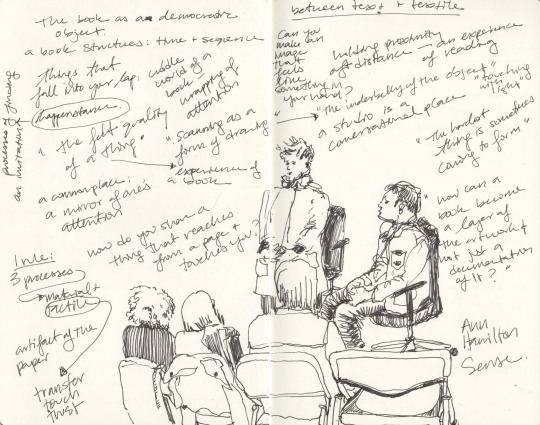 The book as a democratic
object.
a book structures: time + sequence
things that
fall into your lap.
happenstance.
cuddle
world of a
book
wrapping of
attention
processes of finding
an invitation
"the felt quality
of a thing"
"scanning as a
form of drawing
experience of
a book
a commonplace:
a mirror of one's
attention
how do you share a
thing that reaches
from a page +
touches you?
3 processes
material +
tactile
artifact of the
paper
transfer
touch
trust
between text + textile
Can you
make an
image
that
feels
like
something in
your hand?
holding proximity
distance — an experience
of reading
"the underbelly of the object"
a studio is a
conversational place
"touching
with
light"
"The hardest
thing is sometimes
coming to form"
how can a
book become
a layer of
the artwork +
not just a
documentation
of it?"
Ann
Hamilton
Sense.